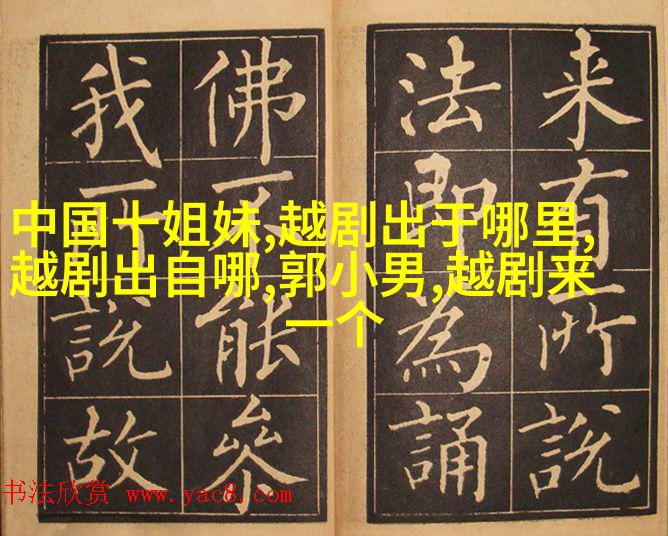 中国十姐妹,越剧出于哪里,
越剧出自哪,郭小男,越剧来
一个
来有所說
法即為誦
佛不能叅
我所說故
书法欣赏 www.yac8.com